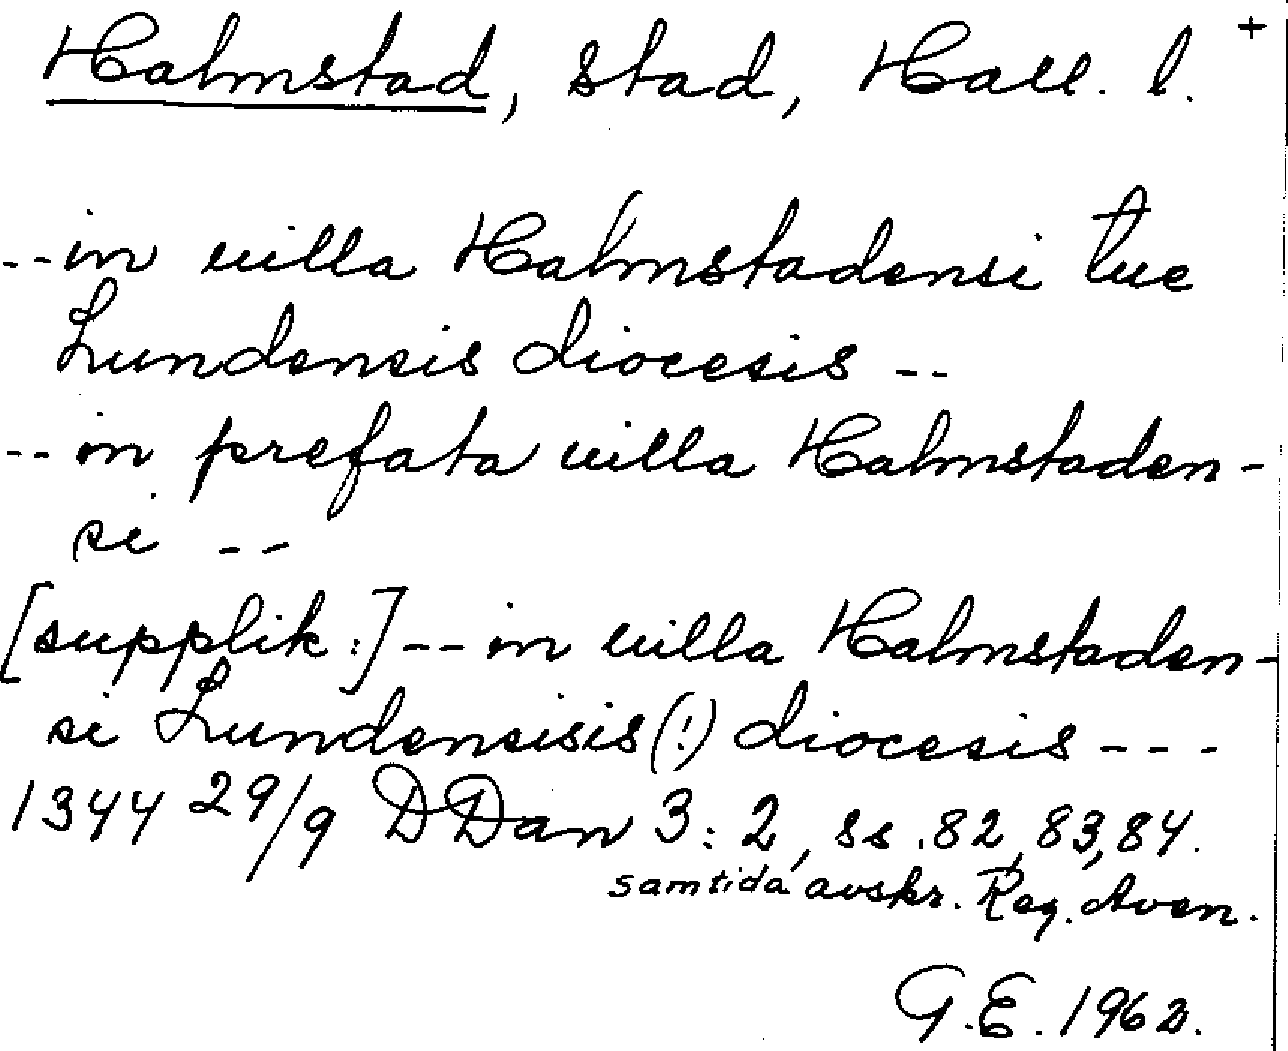 Halmstad, stad, Hall. l. +
--in villa Halmstadensi tue
Lundensis diocesis --
--in prefata villa Halmstaden-
si --
[supplik:] --in villa Halmstaden-
si Lundensisis(!) diocesis ---
1344 29/9 DDan 3:2, ss. 82, 83, 84.
samtida avskr. Reg. Aven.
G.E. 1962.